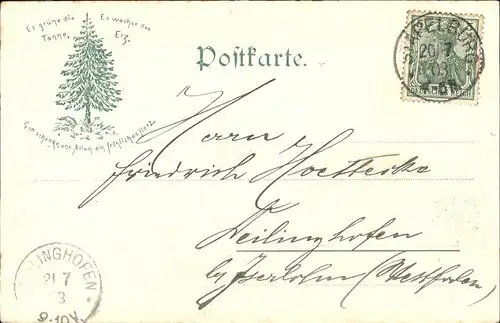 Es grüne die Tanne,
Es wachse das Erz,
Gott schenke uns Allen ein fröhliches Herz.
Postkarte.
20 7
03
Herrn
Friedrich
Deilinghofen
b/ Iserlohn (Westfalen)
LINGHOFEN
21 7
3
8-10V.